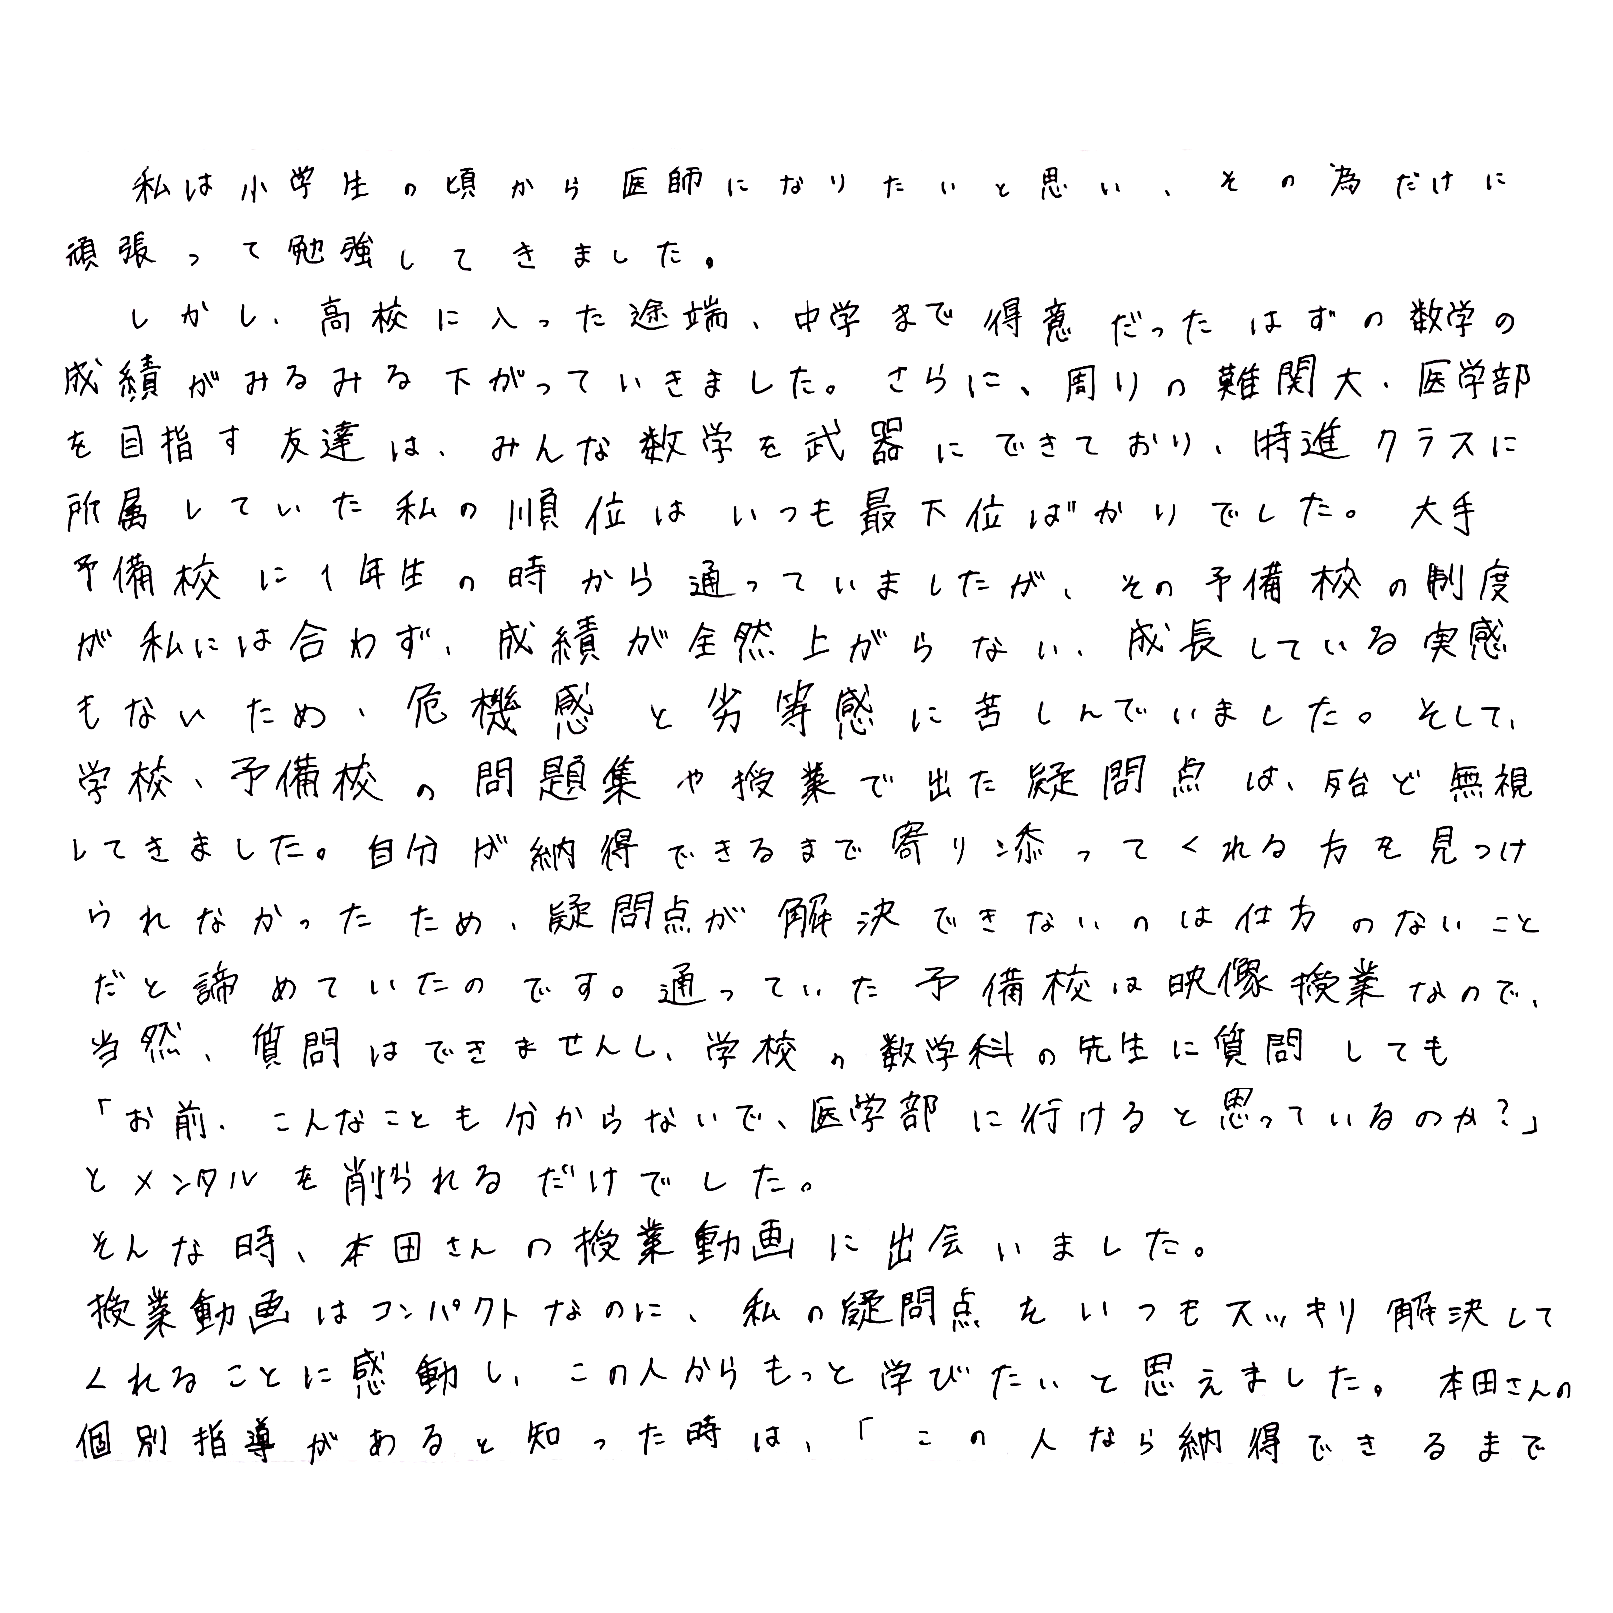 私は小学生の頃から医師になりたいと思い、その為だけに
頑張って勉強してきました。
しかし、高校に入った途端、中学まで得意だったはずの数学の
成績がみるみる下がっていきました。さらに、周りの難関大・医学部
を目指す友達は、みんな数学を武器にできており、特進クラスに
所属していた私の順位はいつも最下位ばかりでした。大手
予備校に1年生の時から通っていましたが、その予備校の制度
が私には合わず、成績が全然上がらない、成長している実感
もないため、危機感と劣等感に苦しんでいました。そして、
学校、予備校の問題集や授業で出た疑問点は、殆ど無視
してきました。自分が納得できるまで寄り添ってくれる方を見つけ
られなかったため、疑問点が解決できないのは仕方のないこと
だと諦めていたのです。通っていた予備校は映像授業なので、
当然、質問はできませんし、学校の数学科の先生に質問しても
「お前、こんなことも分からないで、医学部に行けると思っているのか?」
とメンタルを削られるだけでした。
そんな時、本田さんの授業動画に出会いました。
授業動画はコンパクトなのに、私の疑問点をいつもスッキリ解決して
くれることに感動し、この人からもっと学びたいと思えました。本田さんの
個別指導があると知った時は、「この人なら納得できるまで